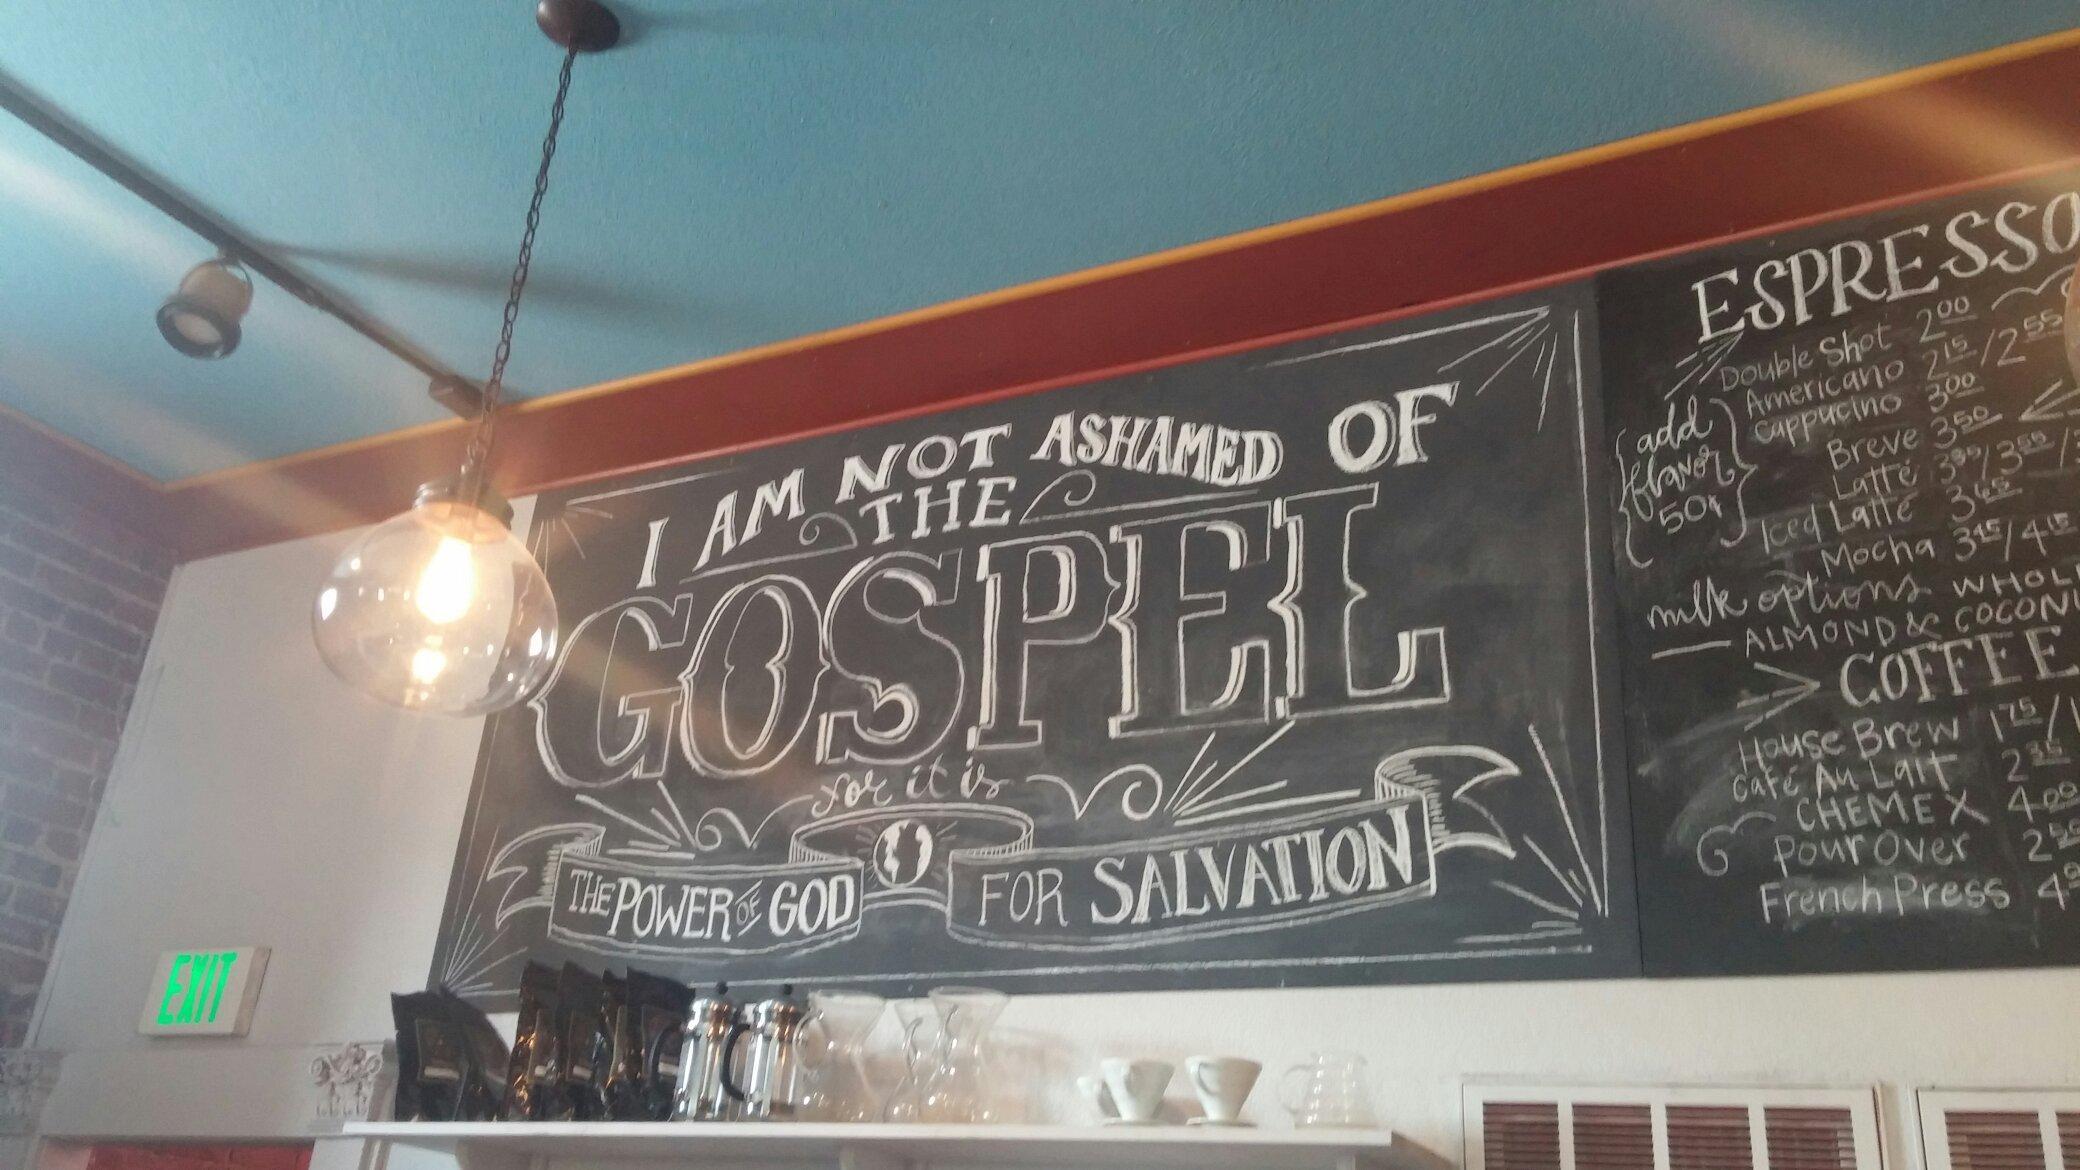 I AM NOT ASHAMED OF
THE
GOSPEL
for it is
THE POWER OF GOD
FOR SALVATION
EXIT
ESPRESSO
Double Shot 2.00
Americano 2.15/2.55
Cappucino 3.00
Breve 3.50
Latté /3.55/
Iced Latté 3.65
Mocha 3.45/4.15
add
flavor
50¢
milk options WHOL
ALMOND & COCONU
COFFEE
House Brew 1.75/1
Café Au Lait 2.35
CHEMEX 4.00
Pour Over 2.50
French Press 4